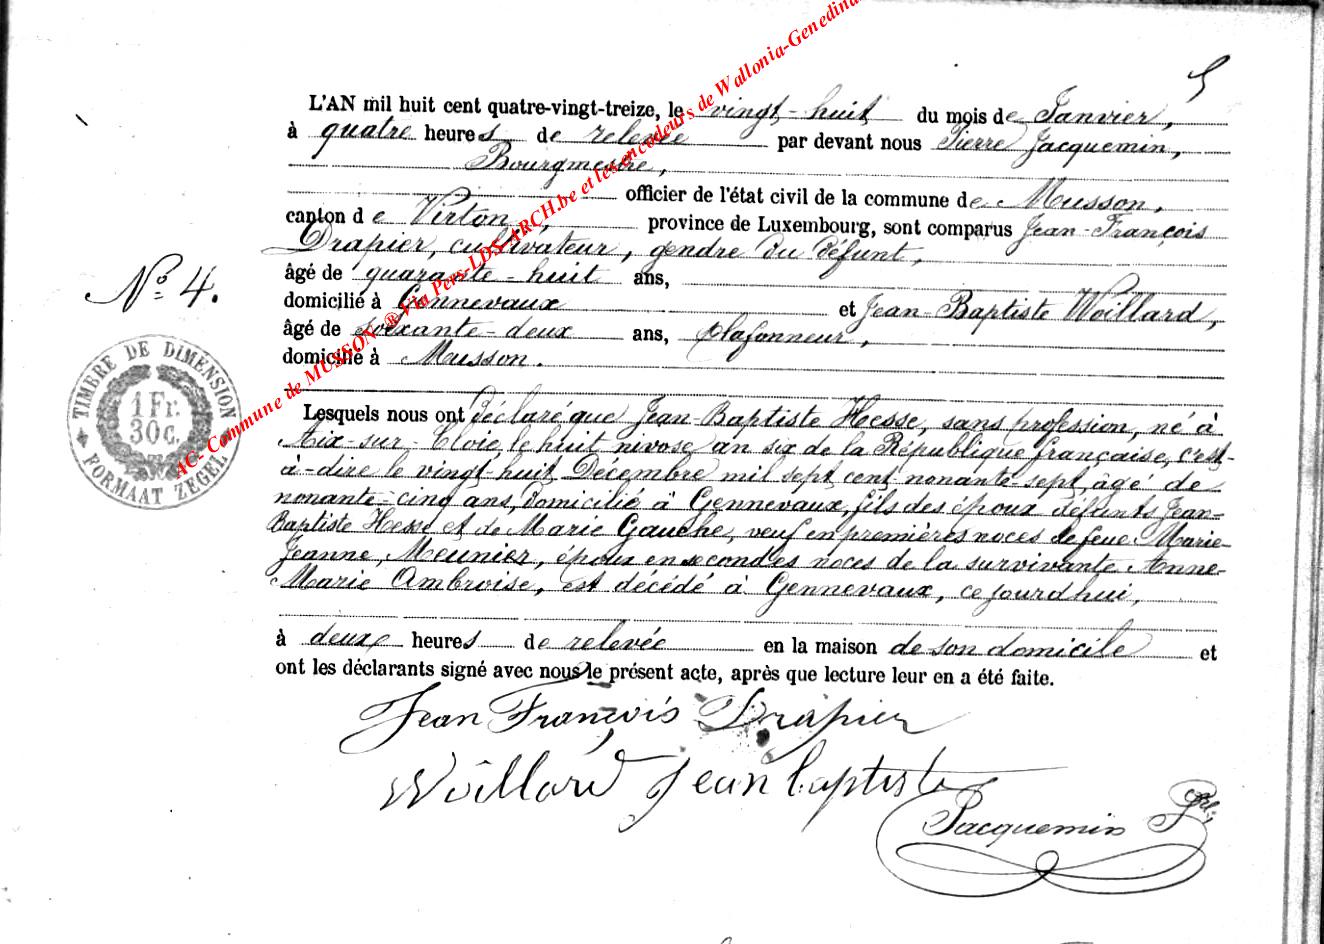 5
L'AN mil huit cent quatre-vingt-treize, le vingt-huit du mois de Janvier,
à quatre heures de relevée par devant nous Pierre Jacquemin,
Bourgmestre,
officier de l'état civil de la commune de Musson,
canton de Virton, province de Luxembourg, sont comparus Jean-François
Drapier, cultivateur, gendre du défunt,
âgé de quarante-huit ans,
domicilié à Gennevaux et Jean-Baptiste Woillard,
âgé de soixante-deux ans, plafonneur,
domicilié à Musson.
N° 4.
TIMBRE DE DIMENSION
1 Fr.
30c.
FORMAAT ZEGEL
Lesquels nous ont déclaré que Jean-Baptiste Hesse, sans profession, né à
Aix-sur-Cloie, le huit nivose an six de la République française, c'est-
à-dire le vingt-huit Décembre mil sept cent nonante-sept, âgé de
nonante-cinq ans, domicilié à Gennevaux, fils des époux défunts Jean-
Baptiste Hesse et de Marie Gauche, veuf en premières noces de feue Marie-
Jeanne, Meunier, époux en secondes noces de la survivante Anne-
Marie Ambroise, est décédé à Gennevaux, ce jourd'hui,
à deux heures de relevée en la maison de son domicile et
ont les déclarants signé avec nous le présent acte, après que lecture leur en a été faite.
Jean François Drapier
Woillard Jean baptiste
Jacquemin
AC- Commune de MUSSON ® Via Pers-LDS-ARCH.be et les encodeurs de Wallonia-Genedina